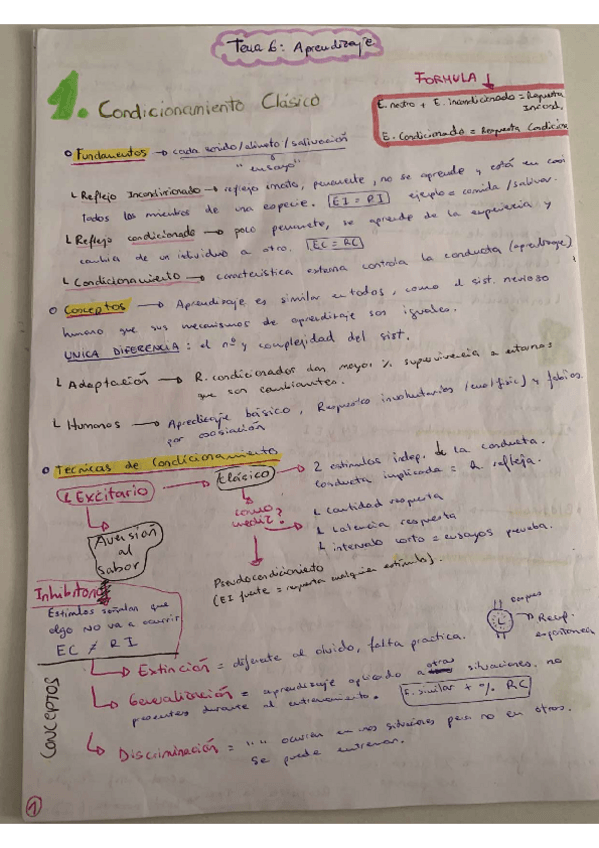 Tema 6: Aprendizaje
1. Condicionamiento Clásico
FORMULA
E. neutro + E. incondicionado = Respuesta Incond.
E. Condicionado = Respuesta Condicion
Fundamentos → cada sonido/alimento/salivación
"ensayo"
Reflejo Incondicionado → reflejo innato, permanente, no se aprende y está en casi
todos los miembros de una especie. EI = RI ejemplo = comida/salivar.
Reflejo condicionado → poco permanente, se aprende de la experiencia y
cambia de un individuo a otro. EC = RC
Condicionamiento → característica externa controla la conducta (aprendizaje)
Conceptos → Aprendizaje es similar en todos, como el sist. nervioso
humano que sus mecanismos de aprendizaje son iguales.
UNICA DIFERENCIA: el nº y complejidad del sist.
Adaptación → R. condicionador dan mayor % supervivencia a entornos
que son cambiantes.
Humanos → Aprendizaje básico, Respuestas involuntarias (emo/fisic) y fobias.
por asociación
Tecnicas de Condicionamiento
Excitario → Clásico → 2 estímulos indep. de la conducta.
conducta implicada = R refleja.
como medir?
cantidad respuesta
latencia respuesta
intervalo corto = ensayos prueba.
Aversión
al
sabor
Pseudocondicionamiento
(EI fuerte = respuesta cualquier estímulo).
Inhibitorio
Estímulos señalan que
algo NO va a ocurrir
EC ≠ RI
Recup.
espontanea
CONCEPTOS
Extinción = diferente al olvido, falta practica.
Generalización = aprendizaje aplicado a otras situaciones no
presentes durante el entrenamiento. E. similar + % RC
Discriminación = " " ocurrir en unas situaciones pero no en otros.
se puede entrenar.
1